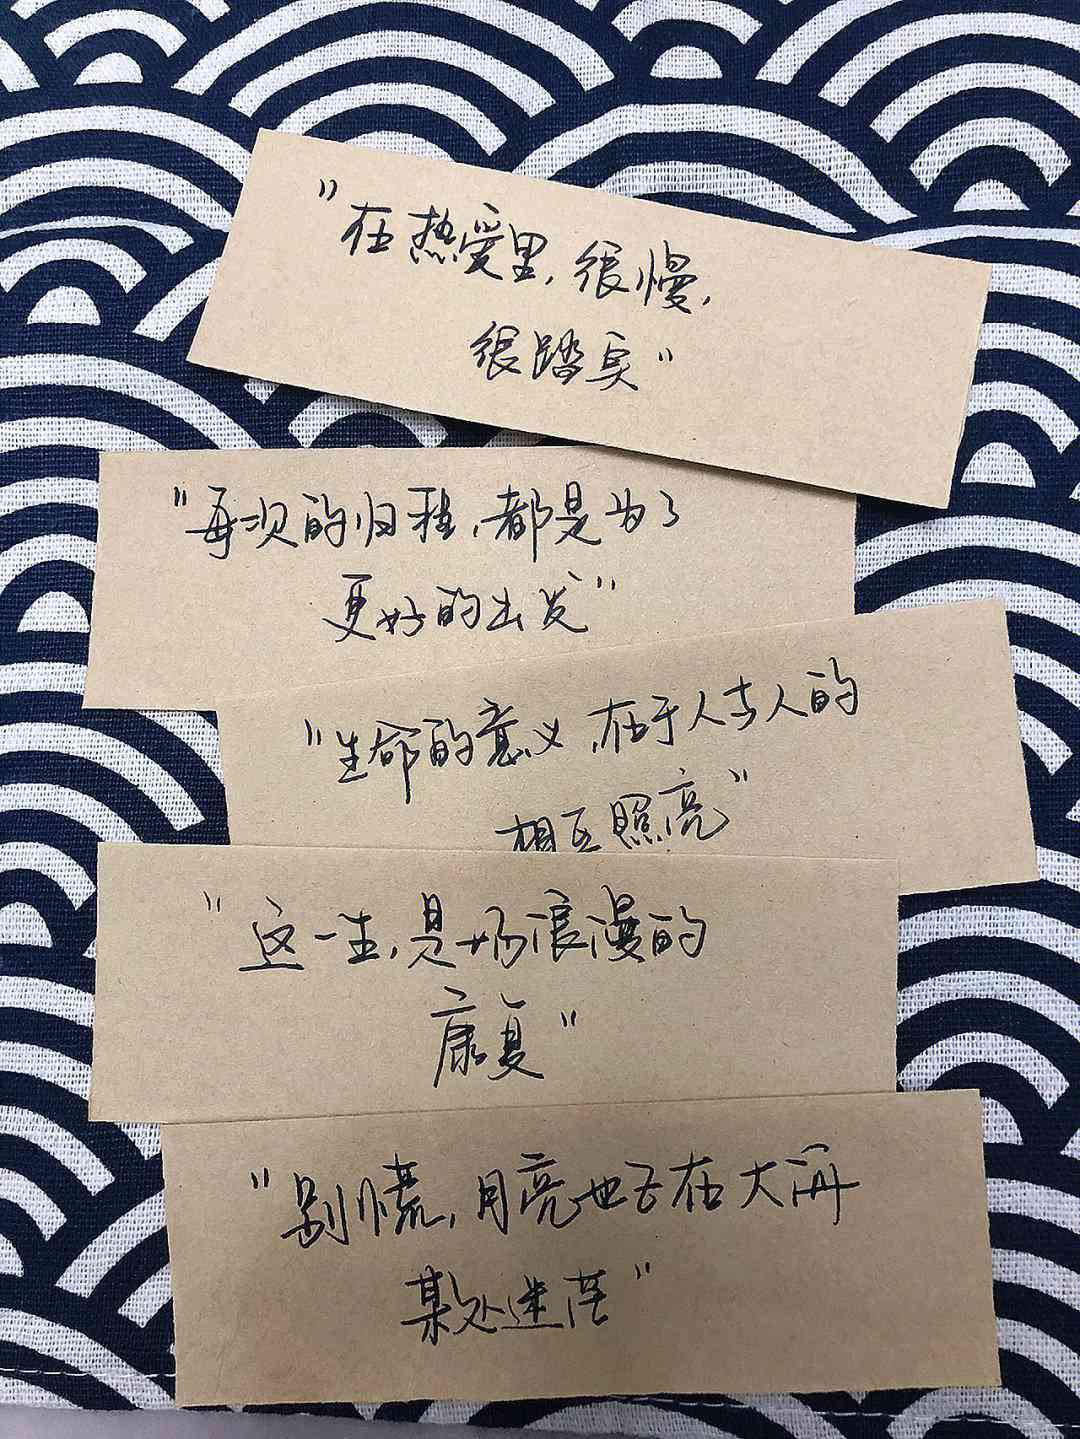 "在热爱里,很慢,
很踏实"
"每次的归程,都是为了
更好的出发"
"生命的意义,在于人与人的
相互照亮"
"这一生,是场浪漫的
康复"
"别慌,月亮也否在大海
某处迷茫"